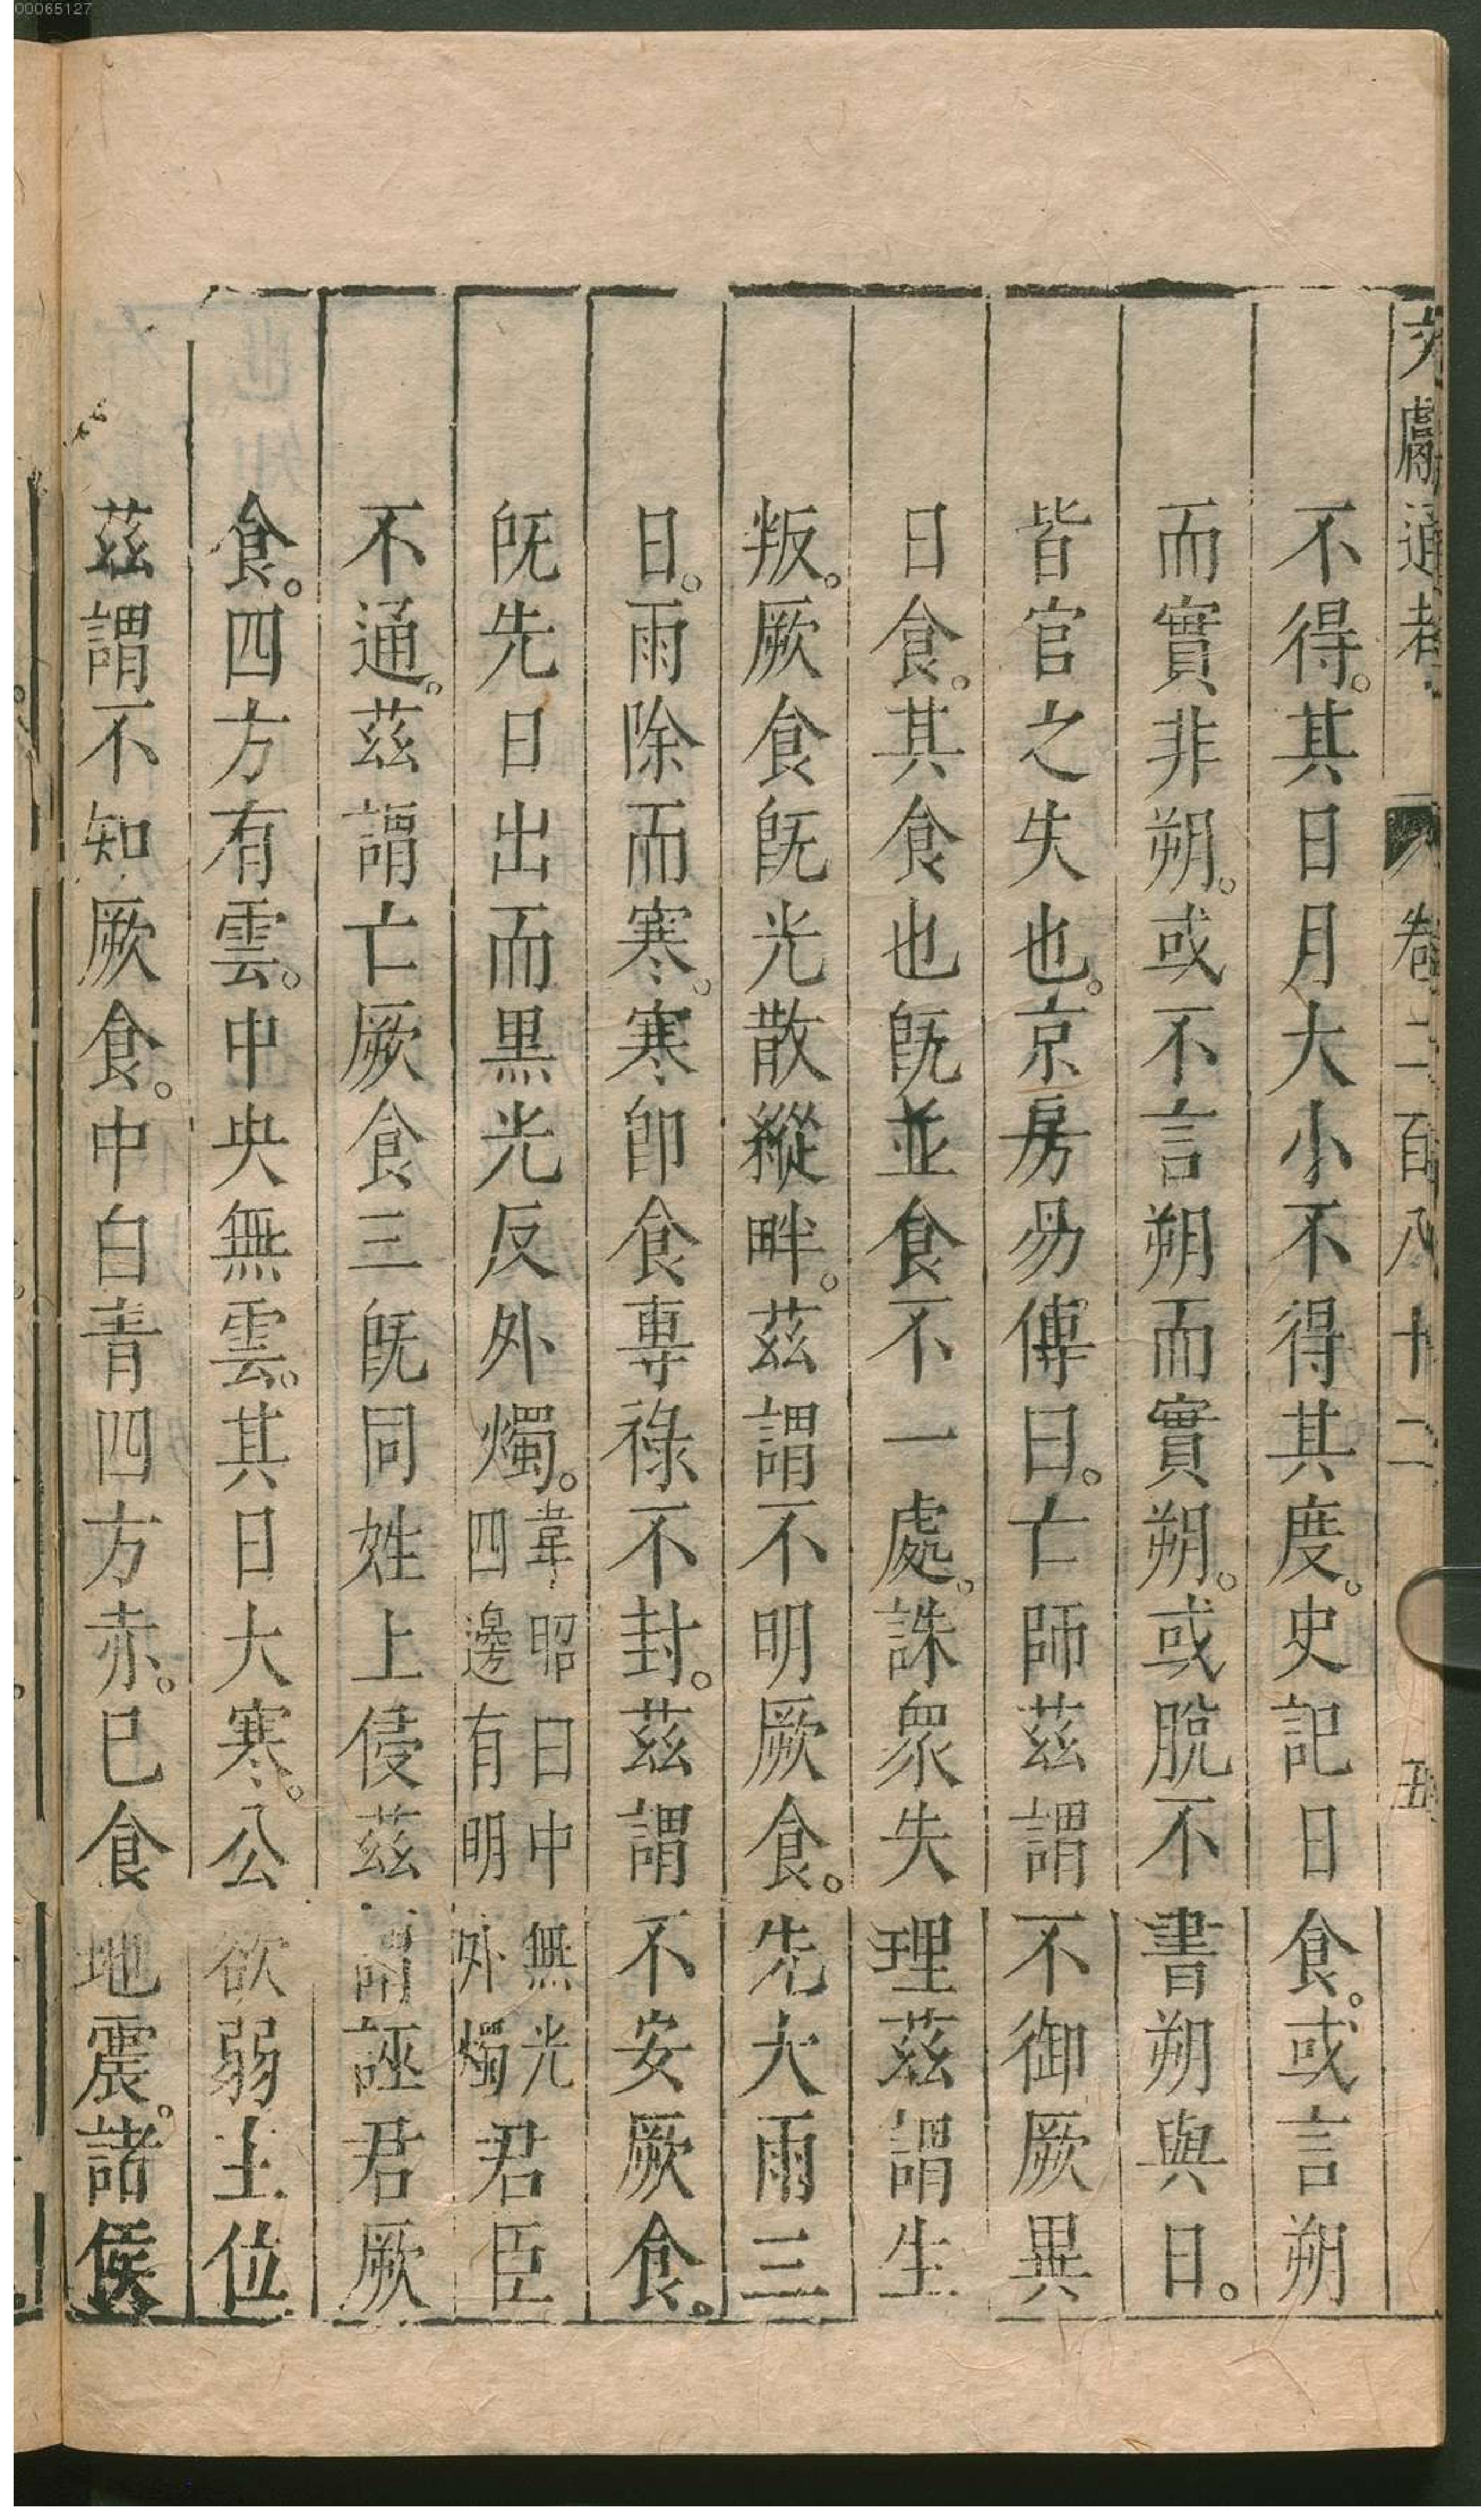 00065127
文獻通考 卷二百八十二 五
不得。其日月大小不得其度。史記日食。或言朔
而實非朔。或不言朔而實朔。或脫不書朔與日。
皆官之失也。京房易傳曰。亡師茲謂不御厥異
日食。其食也旣並食不一處。誅衆失理茲謂生
叛。厥食旣光散縱畔。茲謂不明厥食。先大雨三
日。雨除而寒。寒卽食專祿不封。茲謂不安厥食。
旣先日出而黑光反外燭。韋昭曰中無光四邊有明外燭君臣
不通。茲謂亡厥食三旣同姓上侵茲謂誣君厥
食。四方有雲。中央無雲。其日大寒。公欲弱主位
茲謂不知厥食。中白青四方赤。已食地震。諸侯